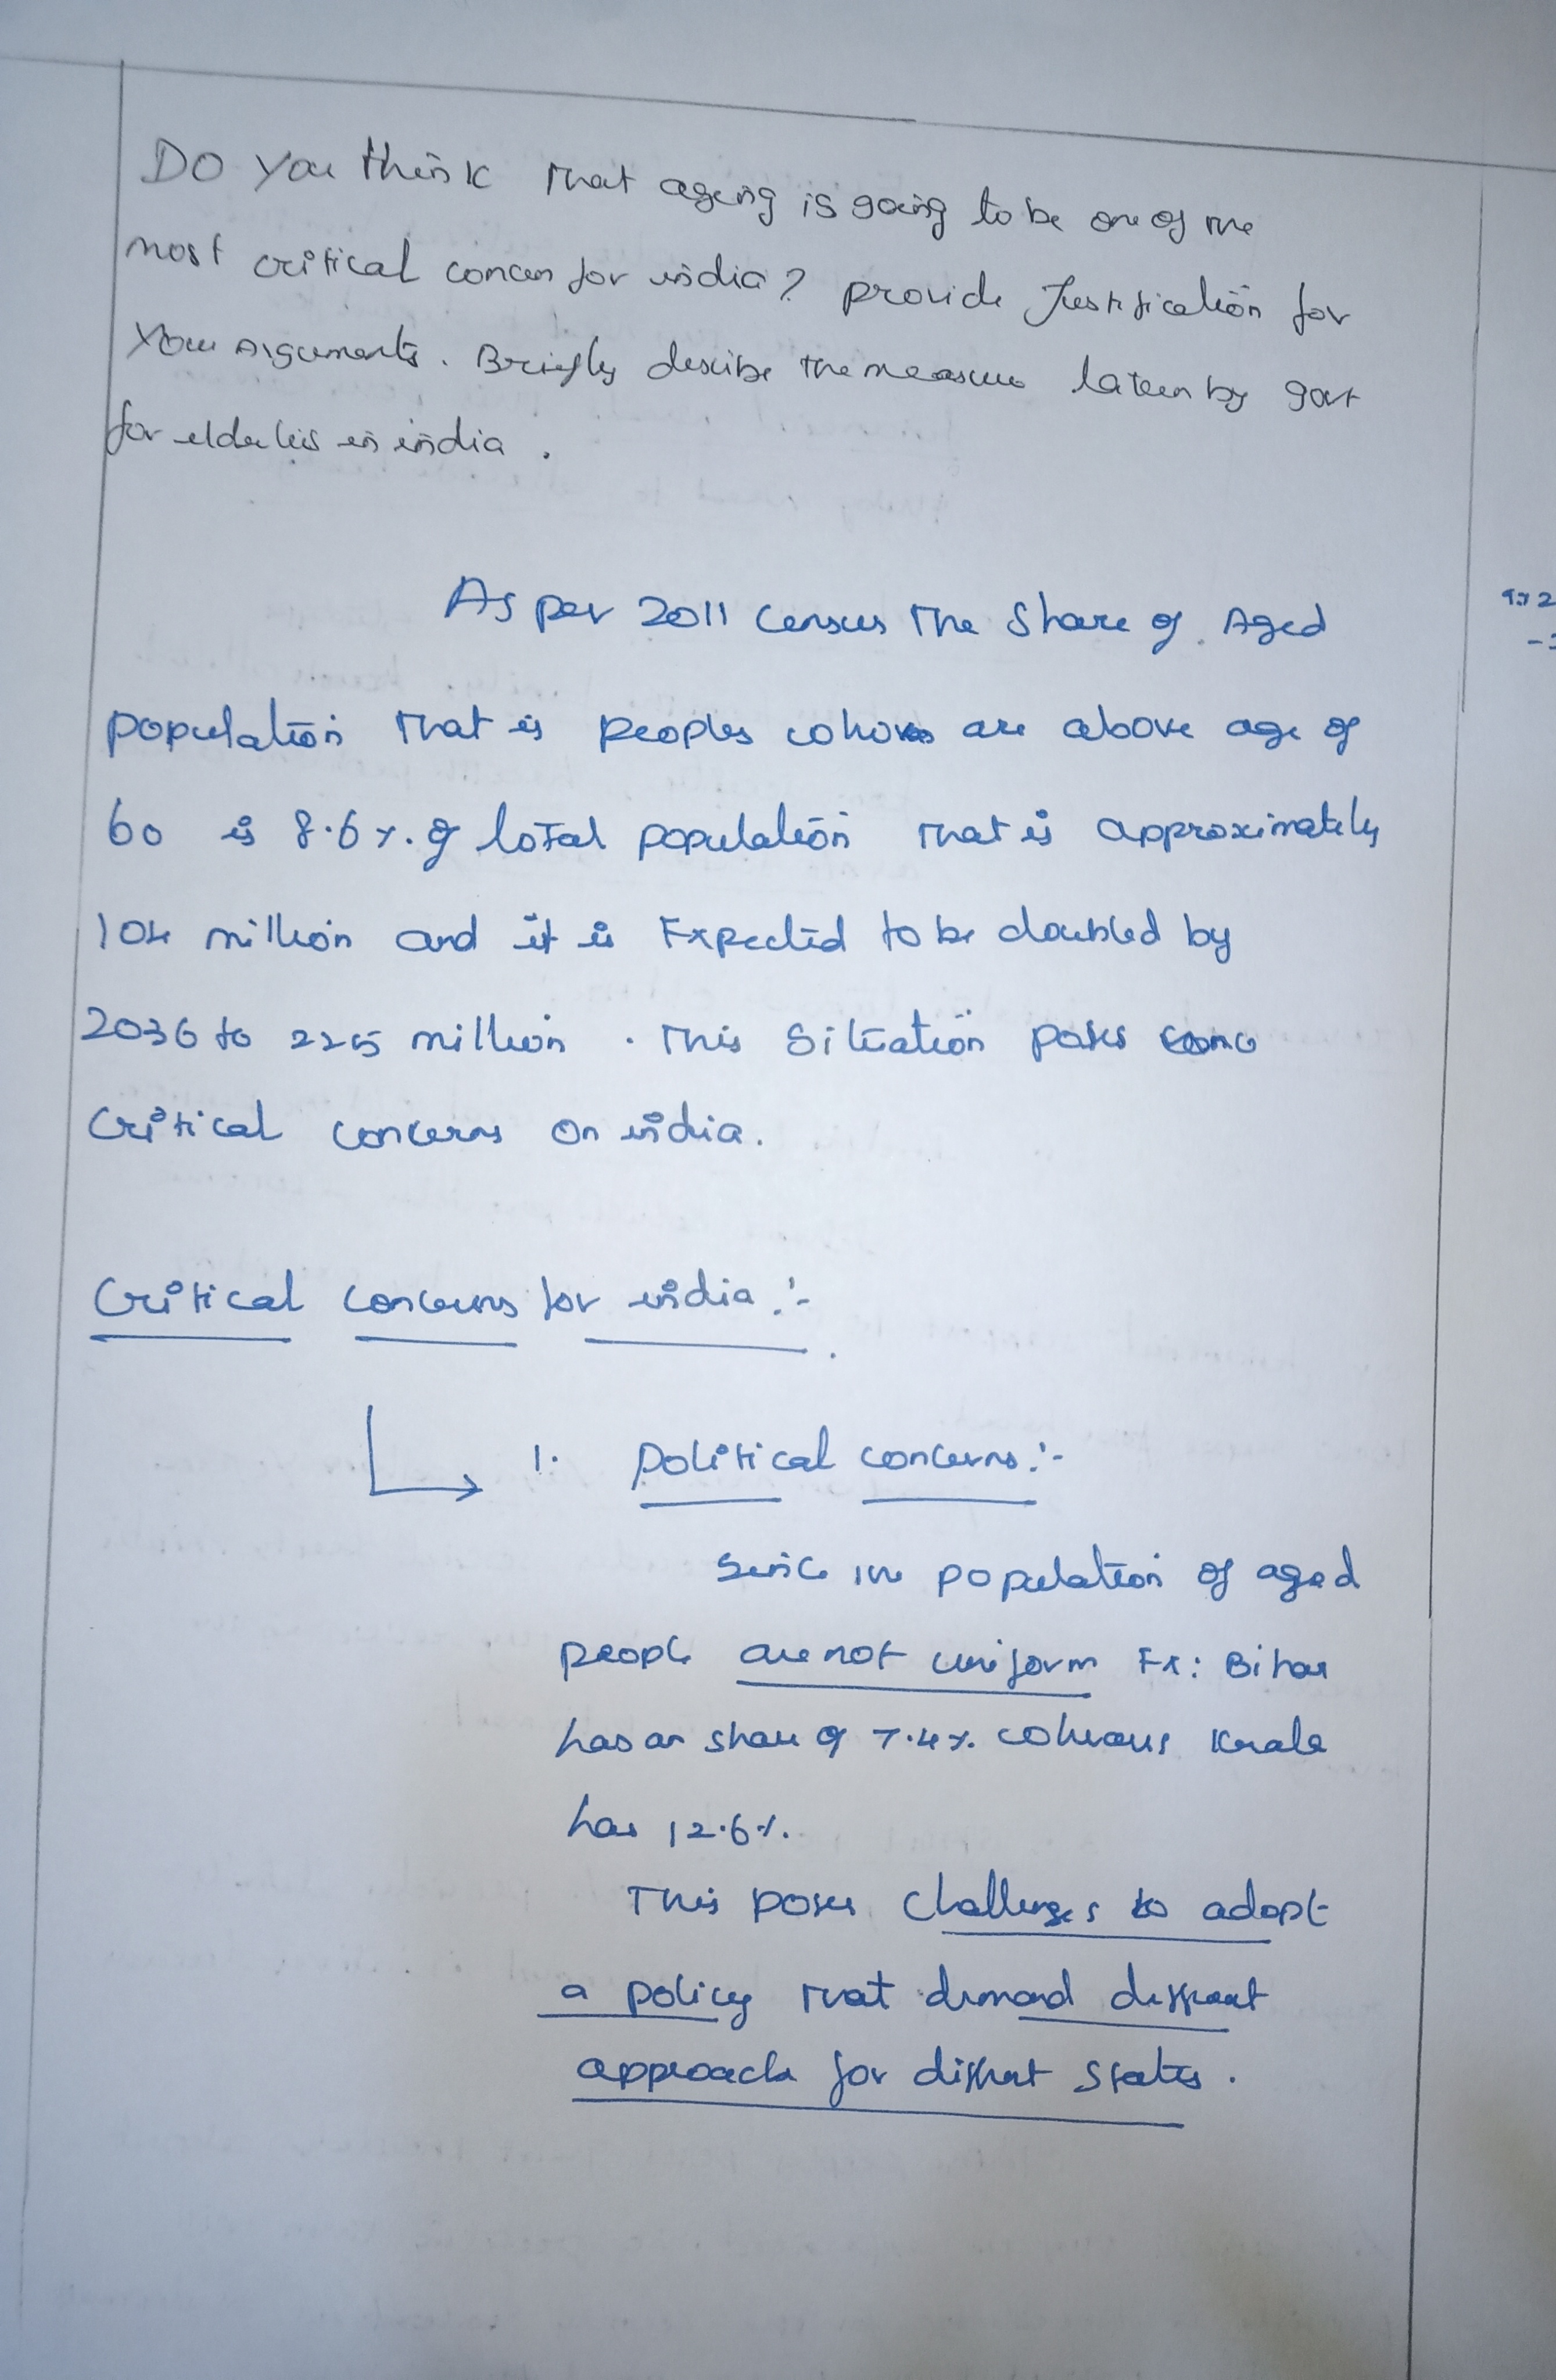 Do you think that ageing is going to be one of the
most critical concern for india? provide Justification for
your Arguments. Briefly describe the measure taken by govt
for elderlies in india.
As per 2011 census the share of Aged
population that is peoples whoes are above age of
60 is 8.6%. of total population that is approximately
104 million and it is Expected to be doubled by
2036 to 225 million. This situation poses some
critical concerns on india.
Critical concerns for india:-
1. Political concerns:-
Since the population of aged
people are not uniform Ex: Bihar
has an share of 7.4%. whereas Kerala
has 12.6%.
This poses challenges to adopt
a policy that demand different
approach for different states.